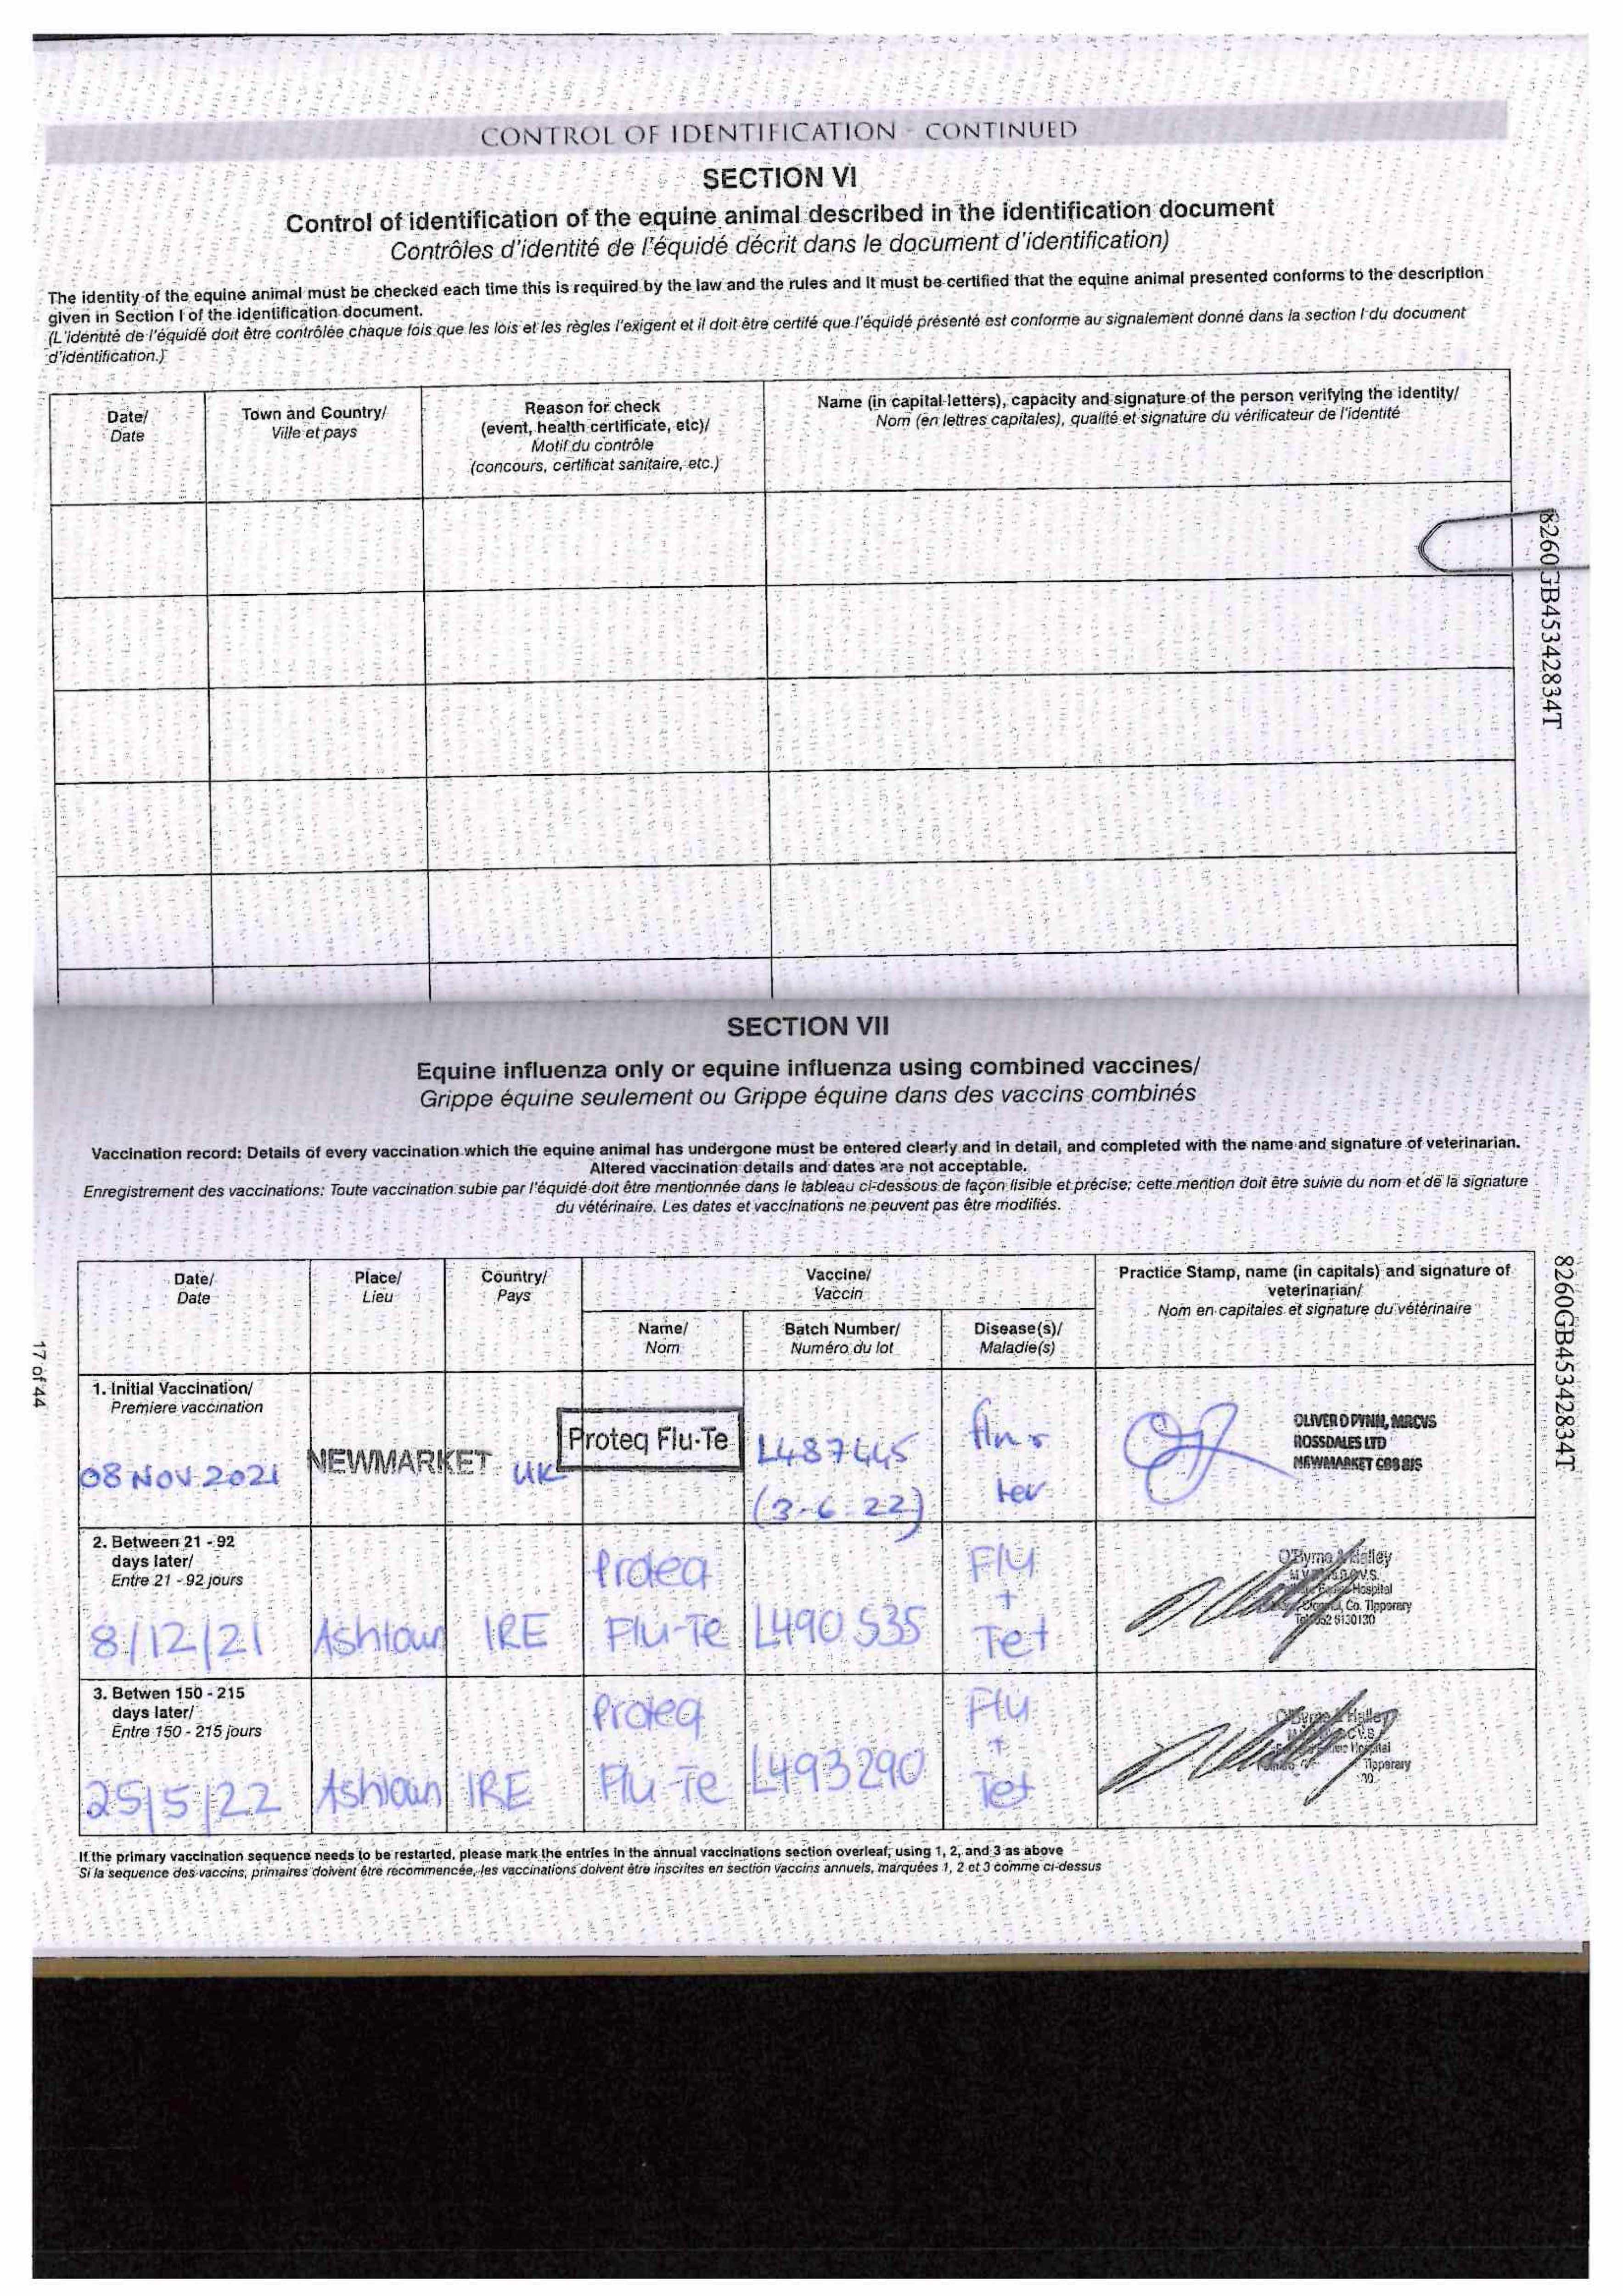 CONTROL OF IDENTIFICATION - CONTINUED
SECTION VI
Control of identification of the equine animal described in the identification document
Contrôles d'identité de l'équidé décrit dans le document d'identification)
The identity of the equine animal must be checked each time this is required by the law and the rules and It must be certified that the equine animal presented conforms to the description
given in Section I of the identification document.
(L'identité de l'équidé doit être contrôlée chaque fois que les lois et les règles l'exigent et il doit être certifé que l'équidé présenté est conforme au signalement donné dans la section I du document
d'identification.)
Date/
Date
Town and Country/
Ville et pays
Reason for check
(event, health certificate, etc)/
Motif du contrôle
(concours, certificat sanitaire, etc.)
Name (in capital letters), capacity and signature of the person verifying the identity/
Nom (en lettres capitales), qualité et signature du vérificateur de l'identité
8260GB45342834T
SECTION VII
Equine influenza only or equine influenza using combined vaccines/
Grippe équine seulement ou Grippe équine dans des vaccins combinés
Vaccination record: Details of every vaccination which the equine animal has undergone must be entered clearly and in detail, and completed with the name and signature of veterinarian.
Altered vaccination details and dates are not acceptable.
Enregistrement des vaccinations: Toute vaccination subie par l'équidé doit être mentionnée dans le tableau ci-dessous de façon lisible et précise; cette mention doit être suivie du nom et de la signature
du vétérinaire. Les dates et vaccinations ne peuvent pas être modifiés.
Date/
Date
Place/
Lieu
Country/
Pays
Vaccine/
Vaccin
Name/
Nom
Batch Number/
Numéro du lot
Disease(s)/
Maladie(s)
Practice Stamp, name (in capitals) and signature of
veterinarian/
Nom en capitales et signature du vétérinaire
8260GB45342834T
17 of 44
1. Initial Vaccination/
Premiere vaccination
08 NOV 2021
NEWMARKET
UK
Proteq Flu-Te
L487445
(3-6-22)
OLIVER D PYNN, MRCVS
ROSSDALES LTD
NEWMARKET CB8 8JS
2. Between 21 - 92
days later/
Entre 21 - 92 jours
8/12/21
Ashtown
IRE
Proteq
Flu-Te
L490535
Flu
+
Tet
O'Byrne & Halley
Hospital
Co. Tipperary
3. Betwen 150 - 215
days later/
Entre 150 - 215 jours
25/5/22
Ashtown
IRE
Proteq
Flu-Te
L493290
Flu
+
Tet
O'Byrne & Halley
Tipperary
If the primary vaccination sequence needs to be restarted, please mark the entries in the annual vaccinations section overleaf, using 1, 2, and 3 as above
Si la sequence des vaccins, primaires doivent être recommencée, les vaccinations doivent être inscrites en section vaccins annuels, marquées 1, 2 et 3 comme ci-dessus